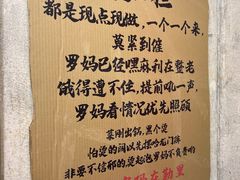 都是现点现做，一个一个来，
莫紧到催
罗妈已经嘿麻利在整老
饿得遭不住，提前吼一声，
罗妈看情况优先照顾
菜刚出锅，黑个烫
怕烫的闹以先摆哈龙门阵
非要不信邪的烫起包罗妈不负责哟